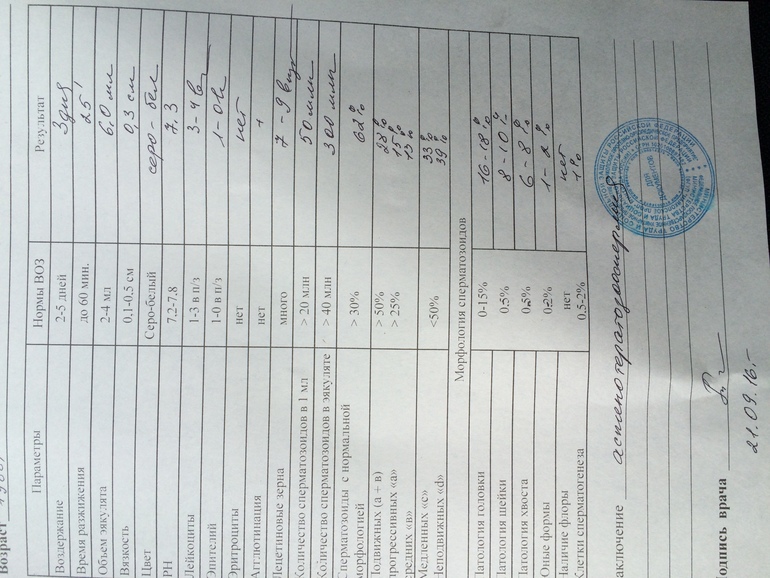 Возраст
Параметры Нормы ВОЗ Результат
Воздержание 2-5 дней 3 дня
Время разжижения до 60 мин. 25'
Объем эякулята 2-4 мл 6,0 мл
Вязкость 0,1-0,5 см 0,3 см
Цвет Серо-белый серо-бел
РН 7,2-7,8 7.3
Лейкоциты 1-3 в п/з 3-4 в
Эпителий 1-0 в п/з 1-0 в
Эритроциты нет нет
Агглютинация нет +
Лецетиновые зерна много 7-9
Количество сперматозоидов в 1 мл > 20 млн 50 млн
Количество сперматозоидов в эякуляте > 40 млн 300 млн
Сперматозоиды с нормальной
морфологией > 30% 62%
Подвижных (а + в) > 50% 28%
прогрессивных «а» > 25% 15%
средних «в» 13%
Медленных «с» 33%
Неподвижных «d» <50% 39%
Морфология сперматозоидов
Патология головки 0-15% 16-18%
Патология шейки 0,5% 8-10%
Патология хвоста 0,5% 6-8%
Юные формы 0-2% 1-2%
Наличие флоры нет нет
Клетки сперматогенеза 0,5-2% 1%
аключение астенотератозооспермия
одпись врача
21.09.16.-